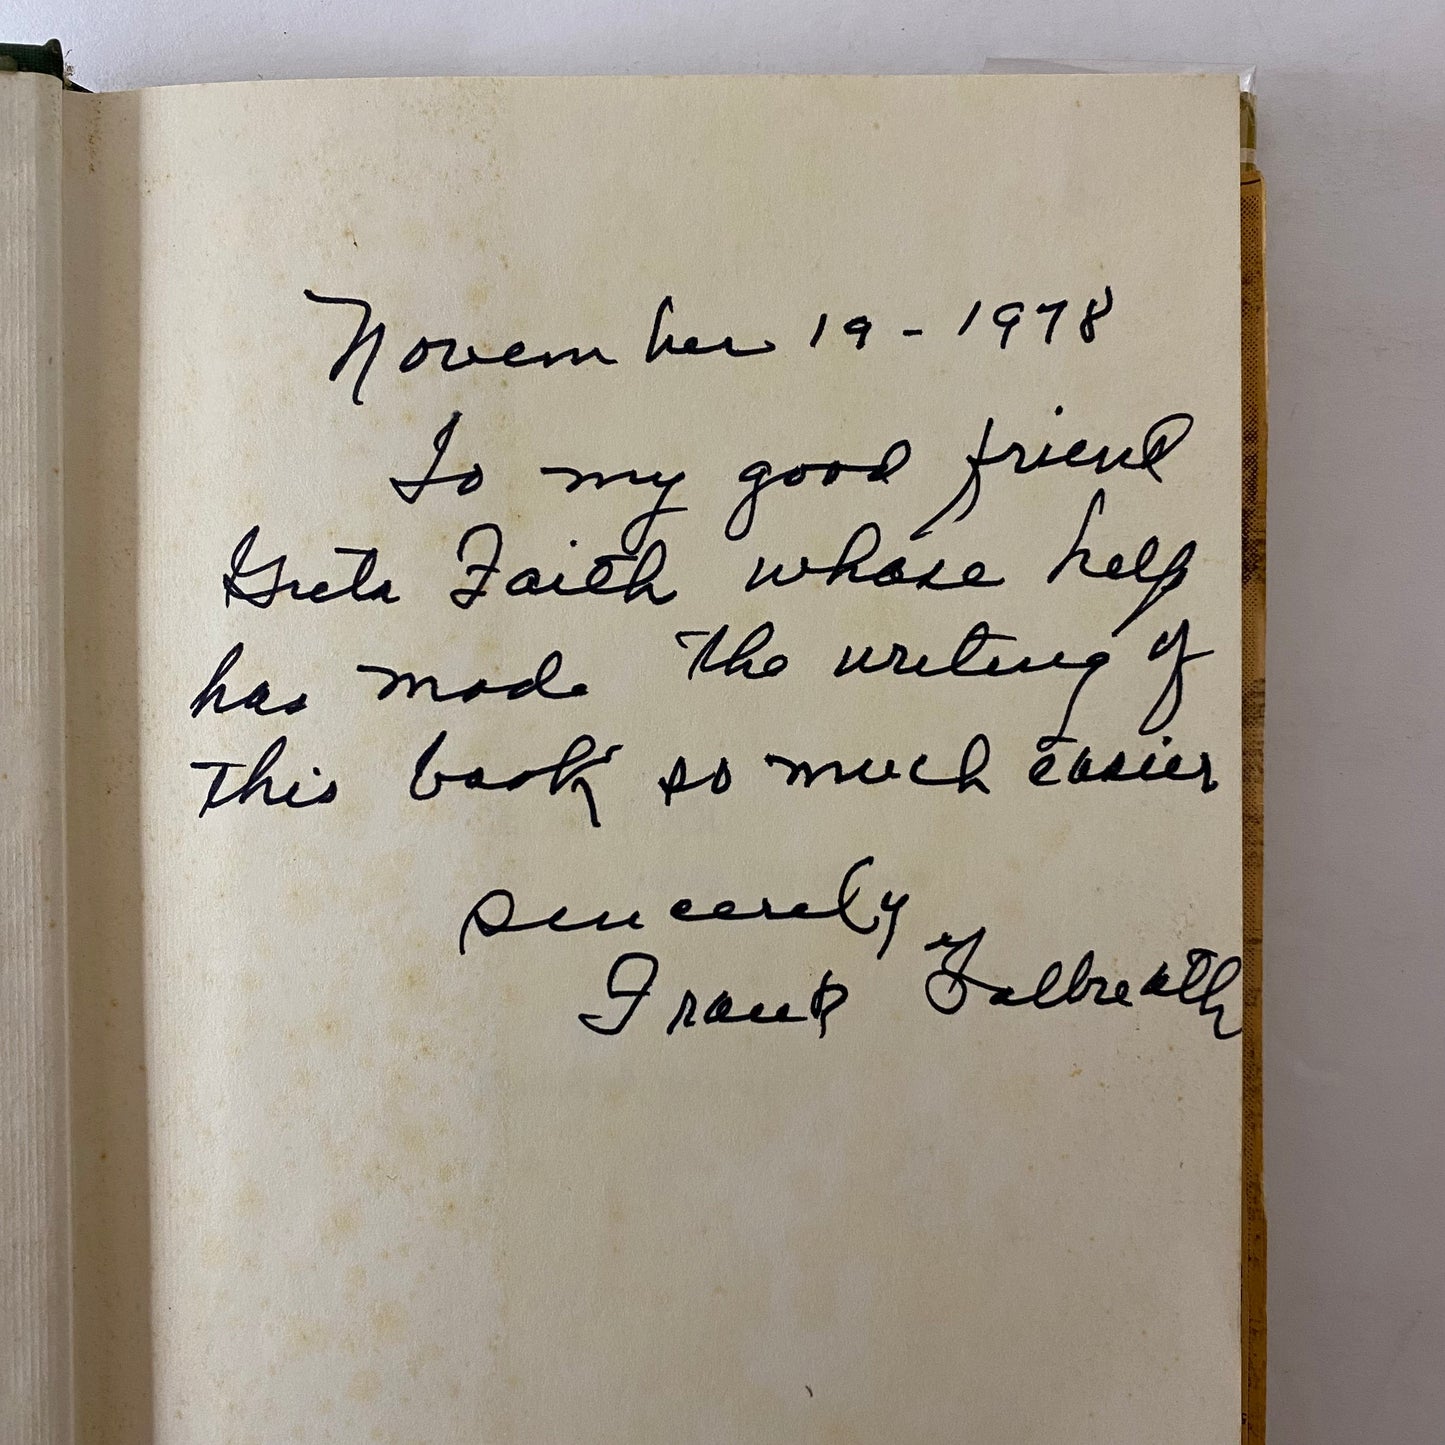 November 19 - 1978
To my good friend
Greta Faith whose help
has made the writing of
this book so much easier
sincerely
Frank Galbreath